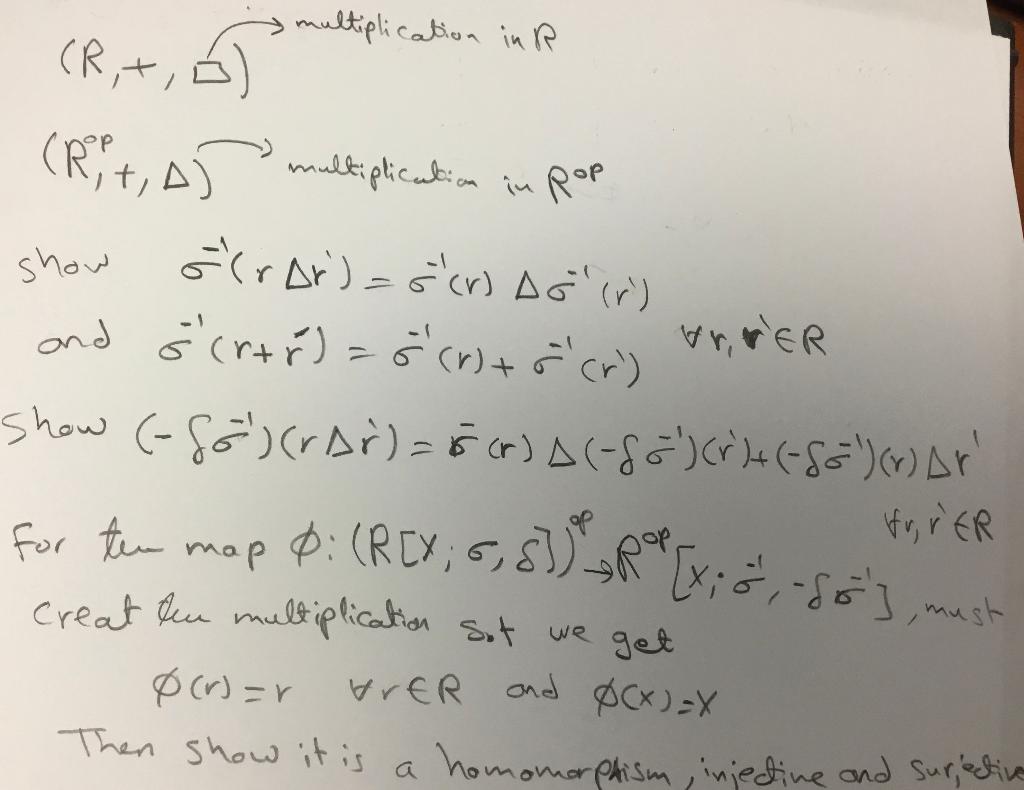 (R, +, □) → multiplication in R
(R^op, +, Δ) → multiplication in R^op
show σ^-1(r Δ r') = σ^-1(r) Δ σ^-1(r')
and σ^-1(r + r') = σ^-1(r) + σ^-1(r') ∀ r, r' ∈ R
show (-δσ^-1)(r Δ r') = σ^-(r) Δ (-δσ^-1)(r') + (-δσ^-1)(r) Δ r'
∀ r, r' ∈ R
For the map φ: (R[X; σ, δ])^op → R^op[X; σ^-1, -δσ^-1], must
creat the multiplication s.t we get
φ(r) = r ∀ r ∈ R and φ(X) = X
Then show it is a homomorphism, injective and surjective